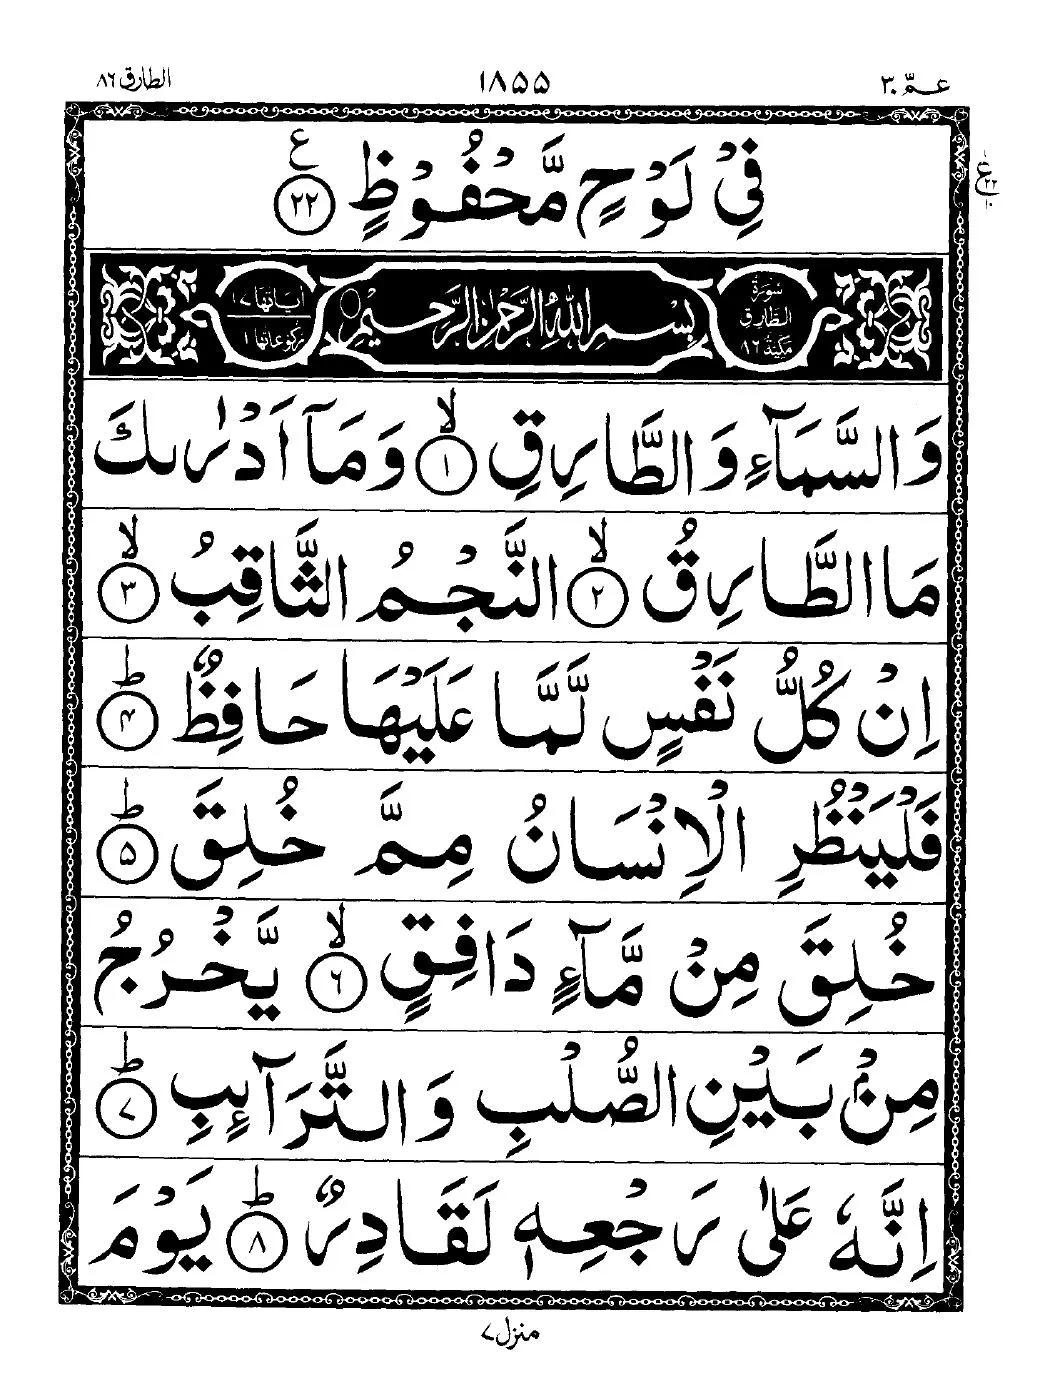 عـمّ ٣٠
١٨٥٥
الطارق ٨٦
فِيْ لَوْحٍ مَّحْفُوْظٍ ﴿٢٢﴾ ع
ع ٢٢ ١٠
سُوْرَةُ الطَّارِقِ مَكِّيَّةٌ ٨٦
بِسْمِ اللّٰهِ الرَّحْمٰنِ الرَّحِيْمِ
اٰيَاتُهَا ١٧ رُكُوْعَاتُهَا ١
وَالسَّمَآءِ وَالطَّارِقِ ﴿١﴾ۙ وَمَآ اَدْرٰىكَ
مَا الطَّارِقُ ﴿٢﴾ۙ النَّجْمُ الثَّاقِبُ ﴿٣﴾ۙ
اِنْ كُلُّ نَفْسٍ لَّمَّا عَلَيْهَا حَافِظٌ ﴿۴﴾ؕ
فَلْيَنْظُرِ الْاِنْسَانُ مِمَّ خُلِقَ ﴿۵﴾ؕ
خُلِقَ مِنْ مَّآءٍ دَافِقٍ ﴿۶﴾ۙ يَّخْرُجُ
مِنْۢ بَيْنِ الصُّلْبِ وَالتَّرَآئِبِ ﴿٧﴾ؕ
اِنَّهٗ عَلٰى رَجْعِهٖ لَقَادِرٌ ﴿٨﴾ؕ يَوْمَ
منزل ٧